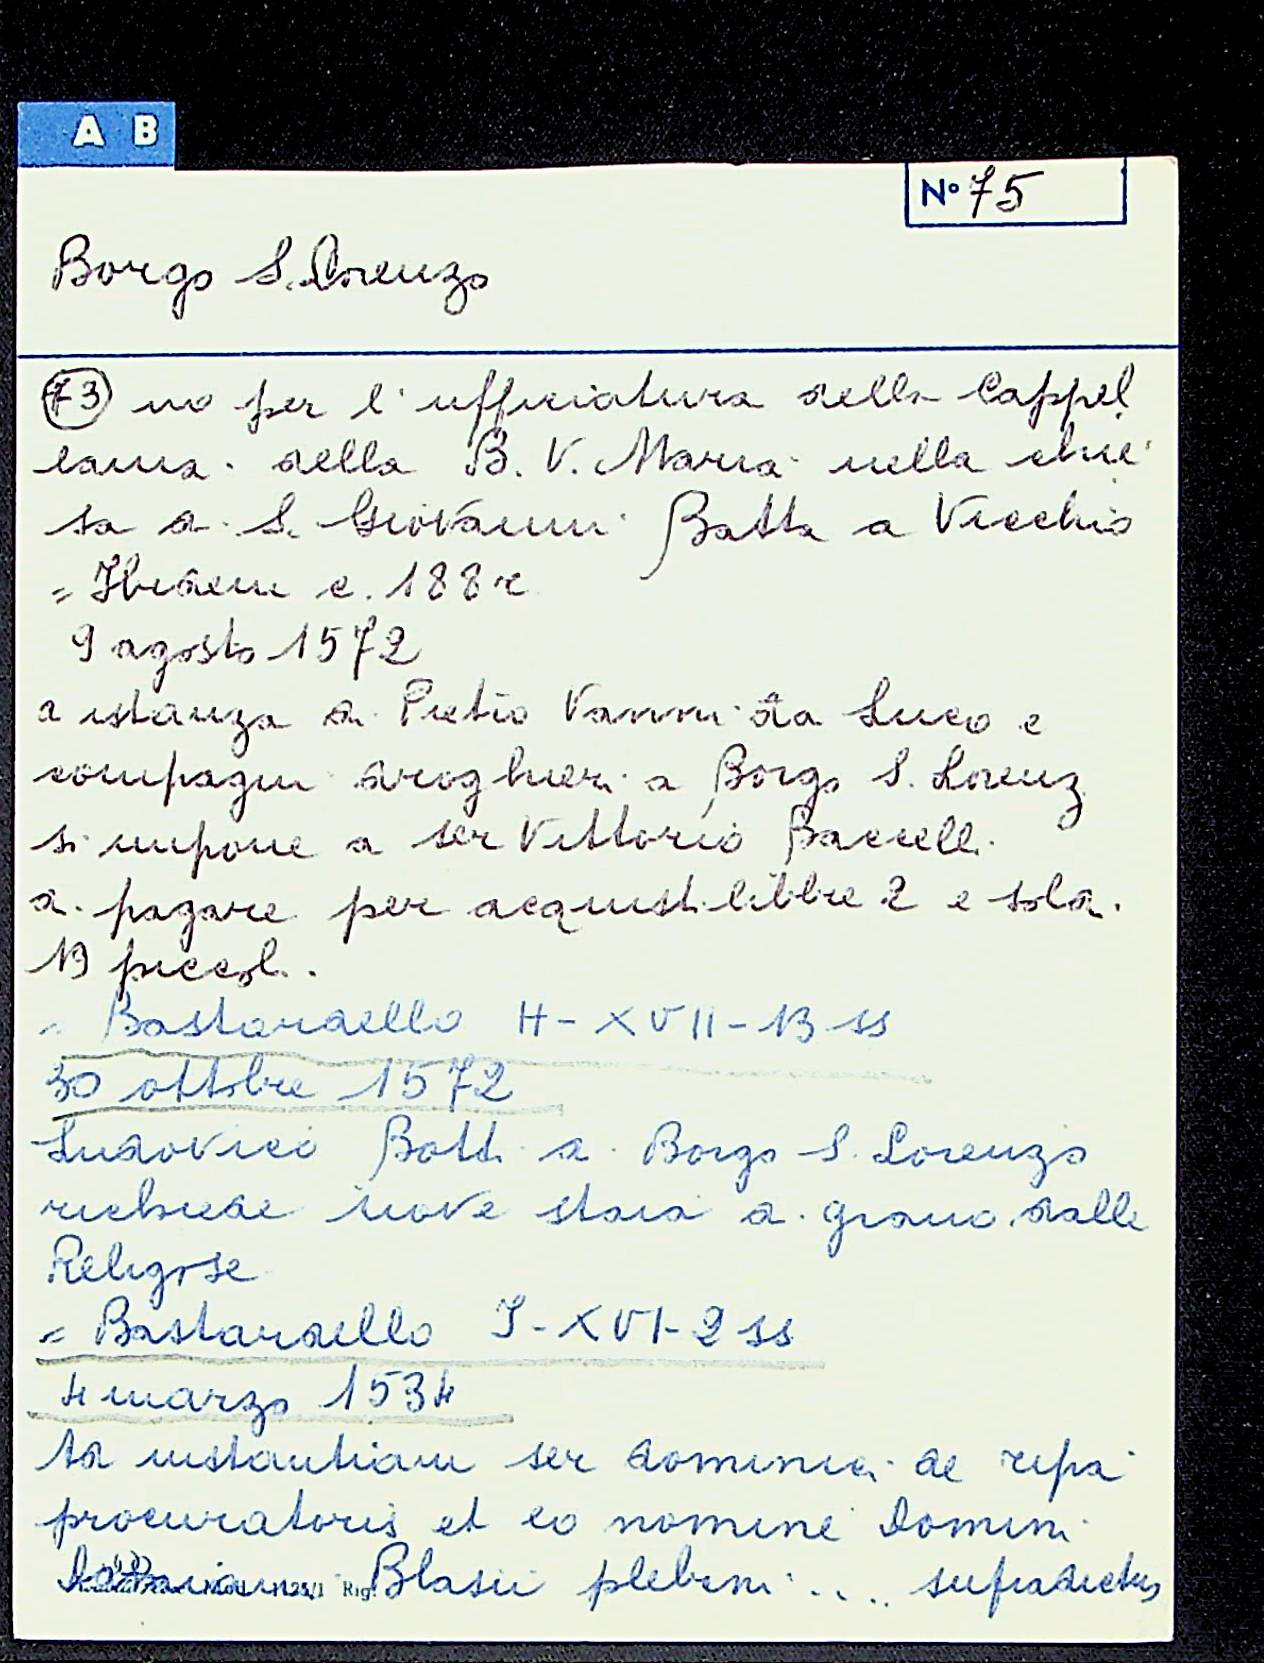 A B
Nº 75
Borgo S. Lorenzo
(73) no per l'ufficiatura della Cappel
lania della B. V. Maria nella chie
sa di S. Giovanni Batta a Vicchio
= Ibidem c. 188 r
9 agosto 1572
a istanza di Pietro Vanni da Luco e
compagni droghieri a Borgo S. Lorenz
si impone a ser Vittorio Baccelli
di pagare per acquisti libbre 2 e soldi
13 piccoli.
= Bastardello H-XVII-13 ss
30 ottobre 1572
Ludovico Botti di Borgo S. Lorenzo
richiede nove staia di grano dalle
Religiose
= Bastardello I-XVI-2 ss
4 marzo 1534
Ad instantiam ser Dominici de ripa
procuratoris et eo nomine Domini
Blasii plebani .... supradictus